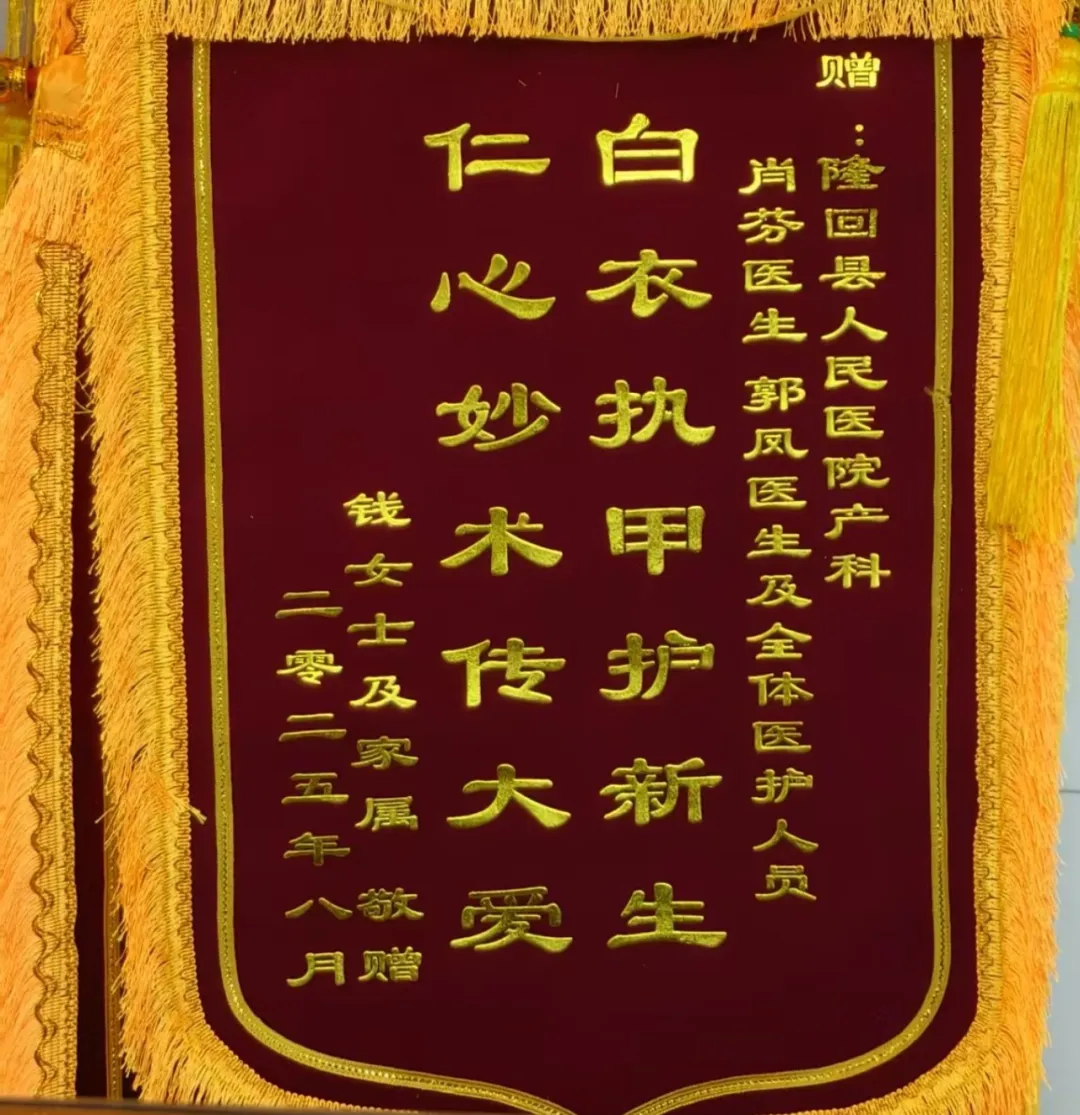 赠：隆回县人民医院产科
肖芬医生 郭凤医生及全体医护人员
白衣执甲护新生
仁心妙术传大爱
钱女士及家属 敬赠
二零二五年八月